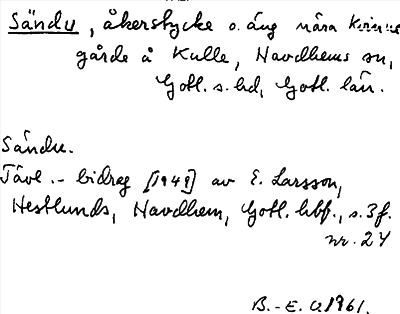 Sändu, åkerstycke o. äng nära Kvinne
gårde å Kulle, Havdhems sn,
Gotl. s. hd, Gotl. län.
Sändu.
Tävl.-bidrag [1949] av E. Larsson,
Hestlunds, Havdhem, Gotl. hbf., s. 3 f.
nr. 24
B.-E. O. 1961.